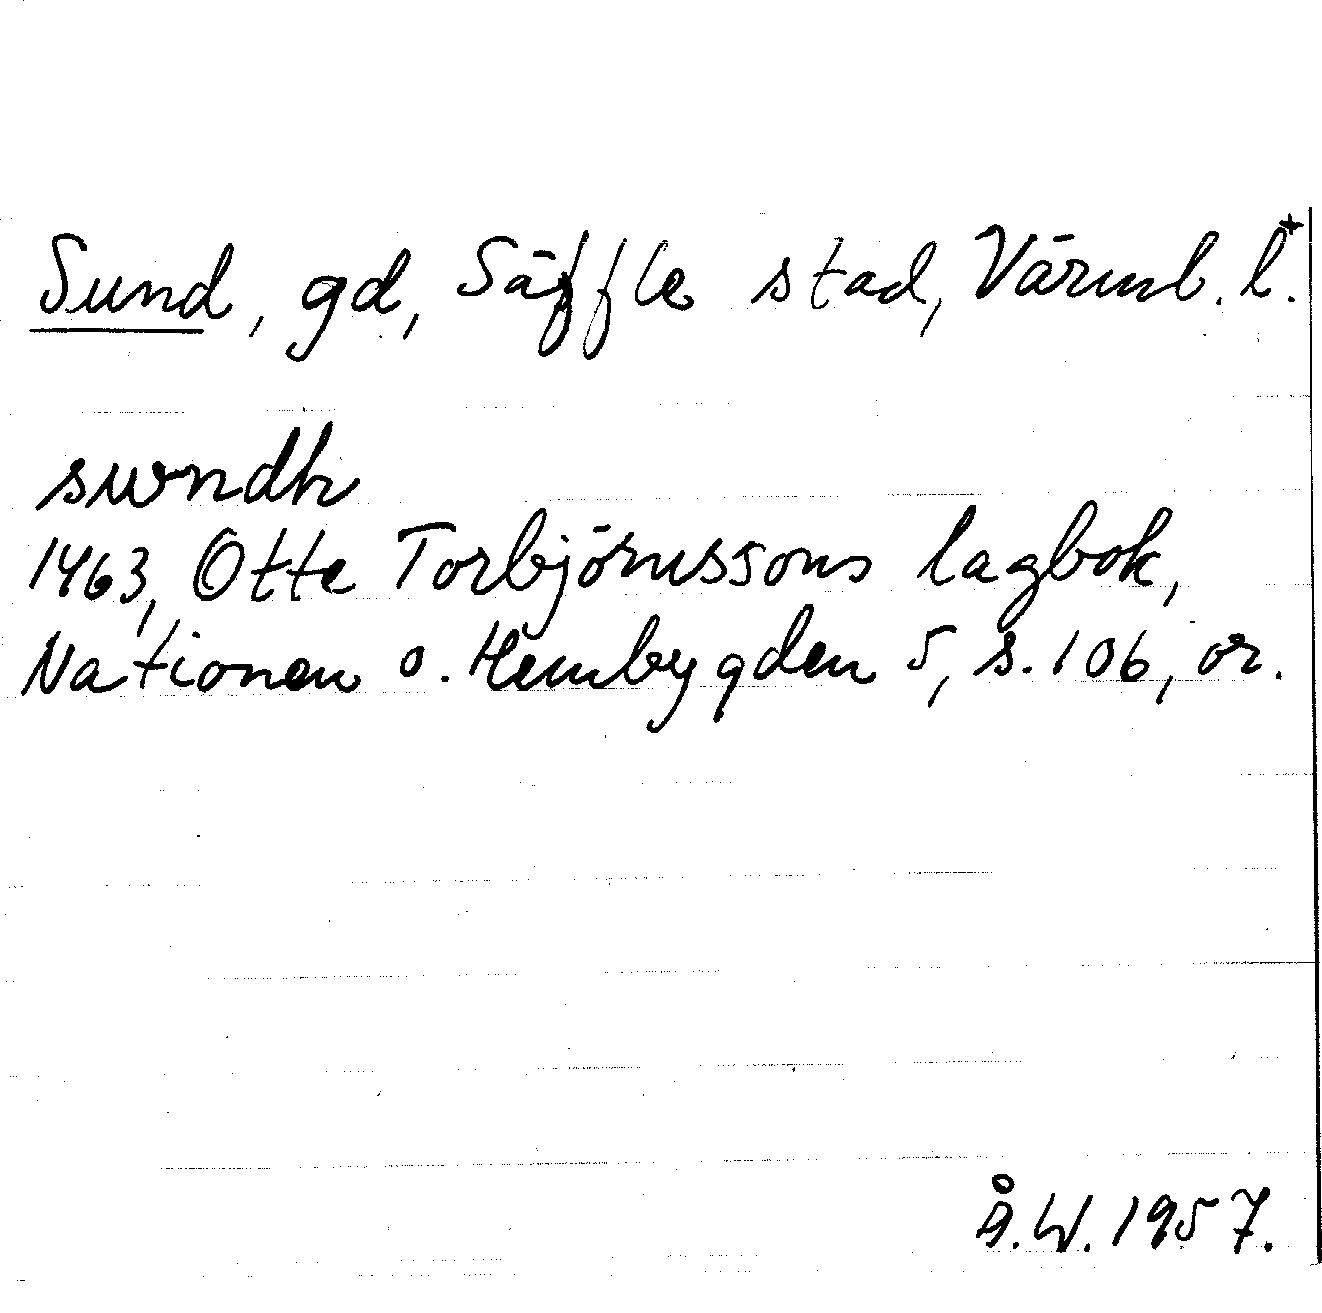 Sund, gd, Säffle stad, Värml. l.+
swndh
1463, Otte Torbjörnssons lagbok,
Nationen o. Hembygden 5, s. 106, or.
Å.W. 1957.